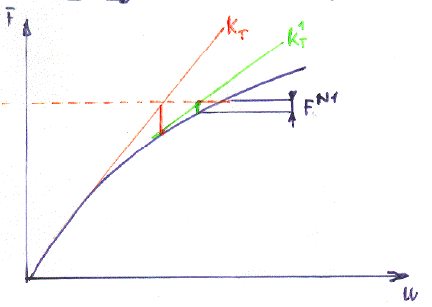 F
K_T
K_T^1
F^N1
u